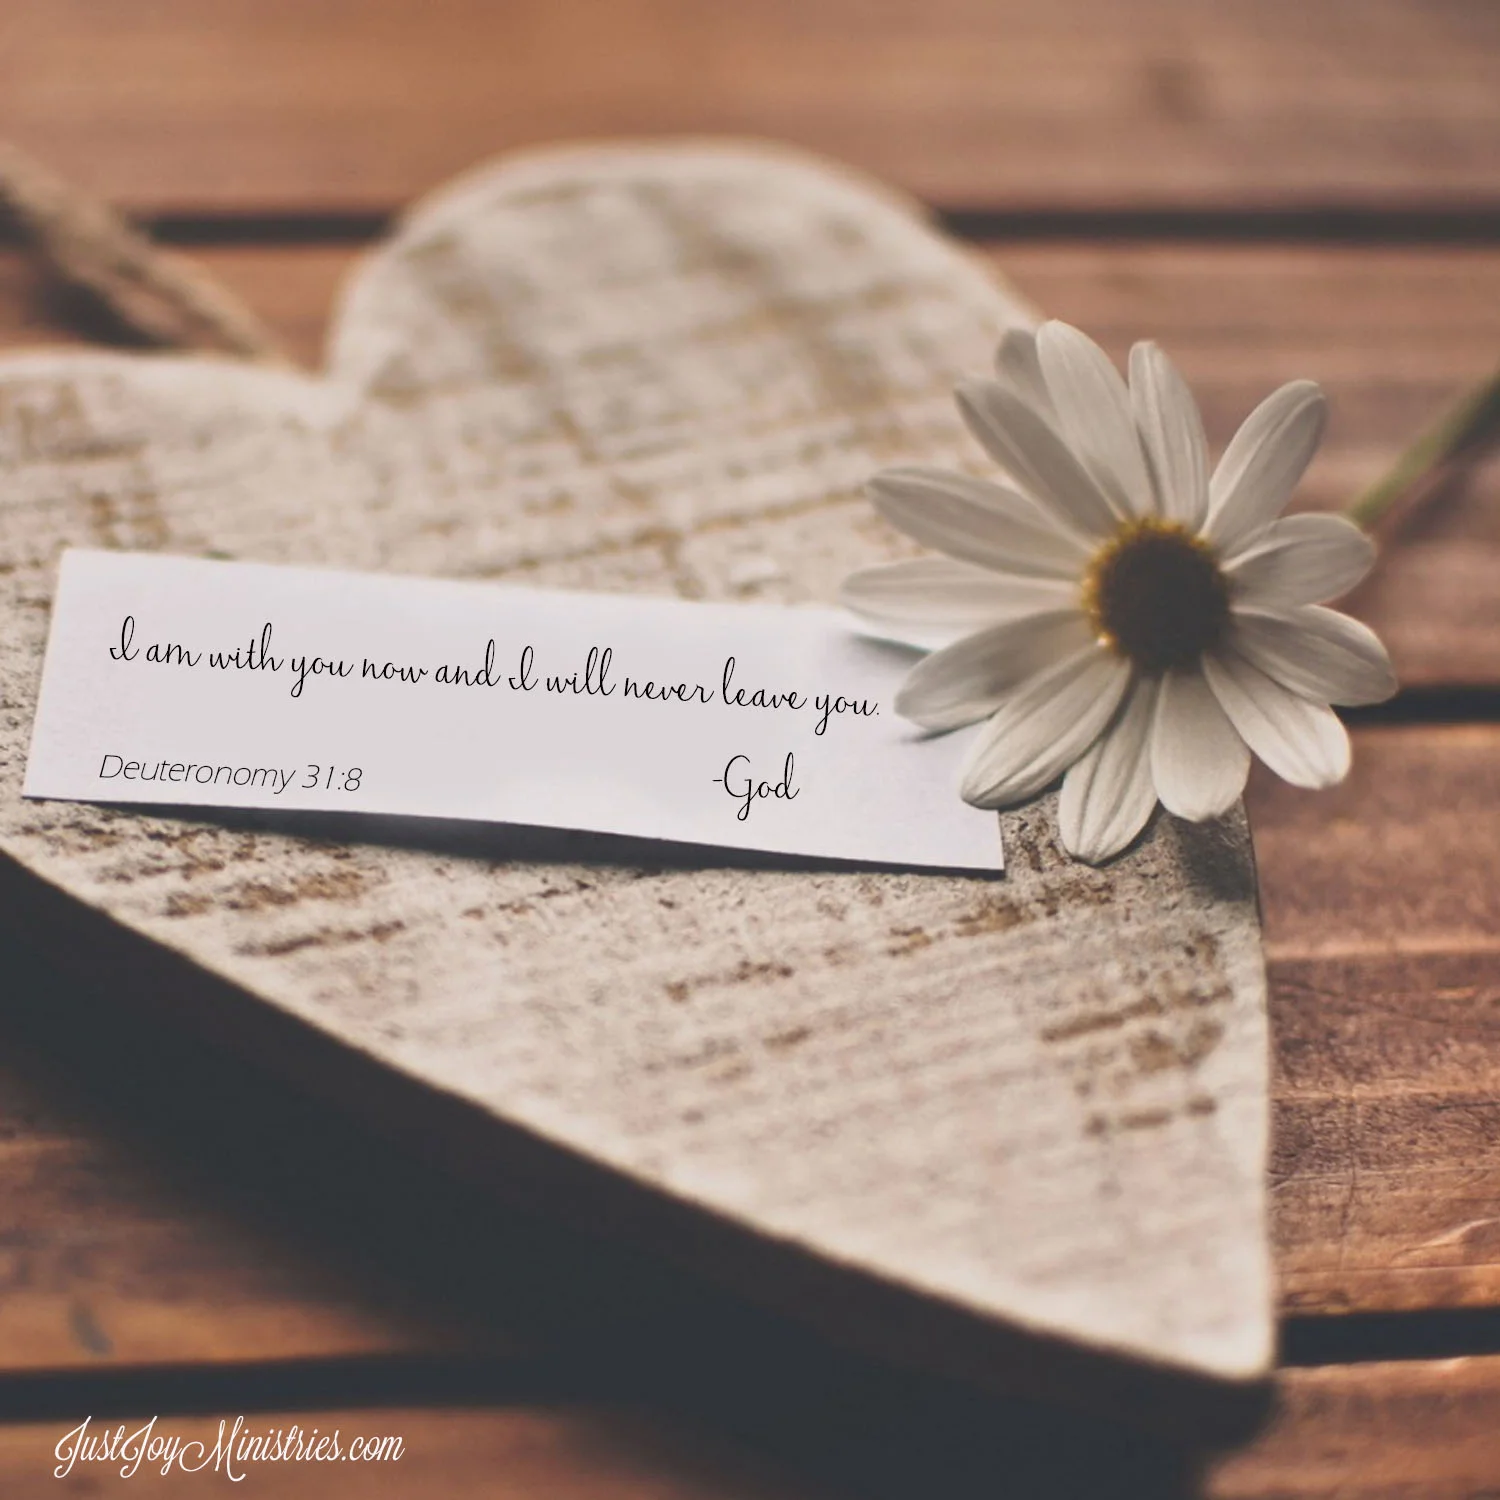 I am with you now and I will never leave you.
Deuteronomy 31:8
-God
JustJoyMinistries.com